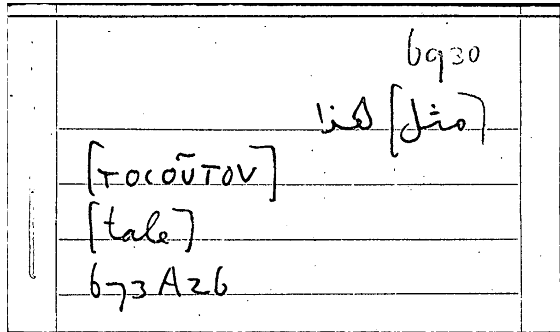 6930
[مثل] هذا
[τοσοῦτον]
[tale]
673A26